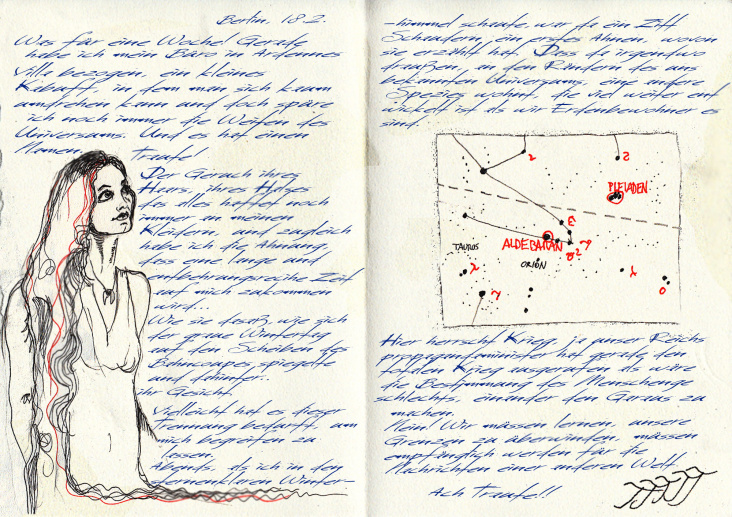 Berlin, 18.2.
Was für eine Woche! Gerade
habe ich mein Büro in Ardennes
Villa bezogen, ein kleines
Kabuff, in dem man sich kaum
umdrehen kann und doch spüre
ich noch immer die Weiten des
Universums. Und es hat einen
Namen. Traute!
Der Geruch ihres
Haars, ihres Halses
das alles haftet noch
immer an meinen
Kleidern, und zugleich
habe ich die Ahnung,
dass eine lange und
entbehrungsreiche Zeit
auf mich zukommen
wird...
Wie sie dasaß, wie sich
der graue Wintertag
auf den Scheiben des
Bahncoupes spiegelte
und dahinter..
ihr Gesicht
Vielleicht hat es dieser
Trennung bedurft, um
mich begreifen zu
lassen.
Abends, als ich in den
sternenklaren Winter-
-himmel schaute, war da ein Zitt
Schaudern, ein erstes Ahnen, wovon
sie erzählt hat. Dass da irgendwo
draußen, an den Rändern des uns
bekannten Universums, eine andere
Spezies wohnt, die viel weiter ent
wickelt ist als wir Erdenbewohner es
sind.
2
2
PLEIADEN
3
ALDEBARAN
TAURUS
ORION
Hier herrscht Krieg, ja unser Reichs
propagandaminister hat gerade den
totalen Krieg ausgerufen als wäre
die Bestimmung des Menschenge
schlechts, einander den Garaus zu
machen.
Nein! Wir müssen lernen, unsere
Grenzen zu überwinden, müssen
empfänglich werden für die
Nachrichten einer anderen Welt.
Ach Traute!!